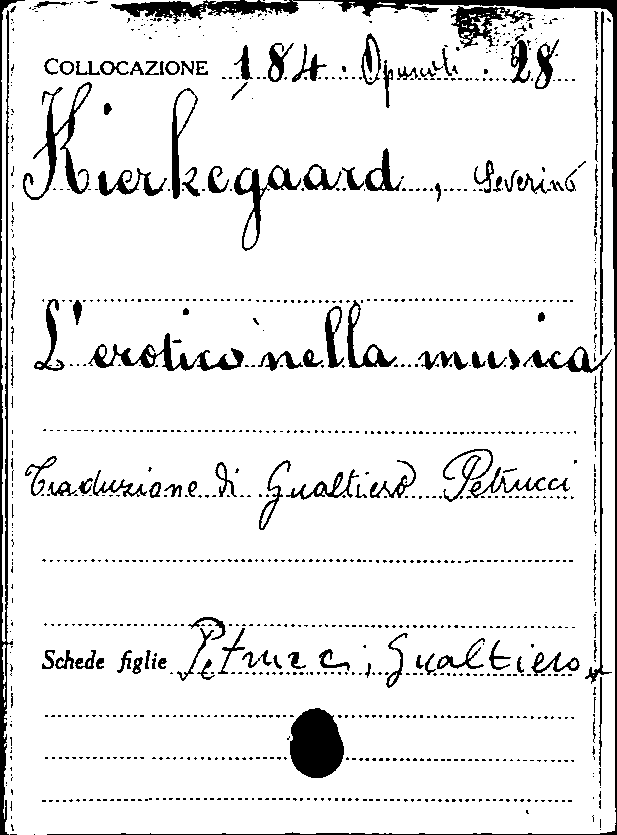 COLLOCAZIONE 184. Opuscoli. 28
Kierkegaard, Severino
L'erotico nella musica
Traduzione di Gualtiero Petrucci
Schede figlie Petrucci, Gualtiero